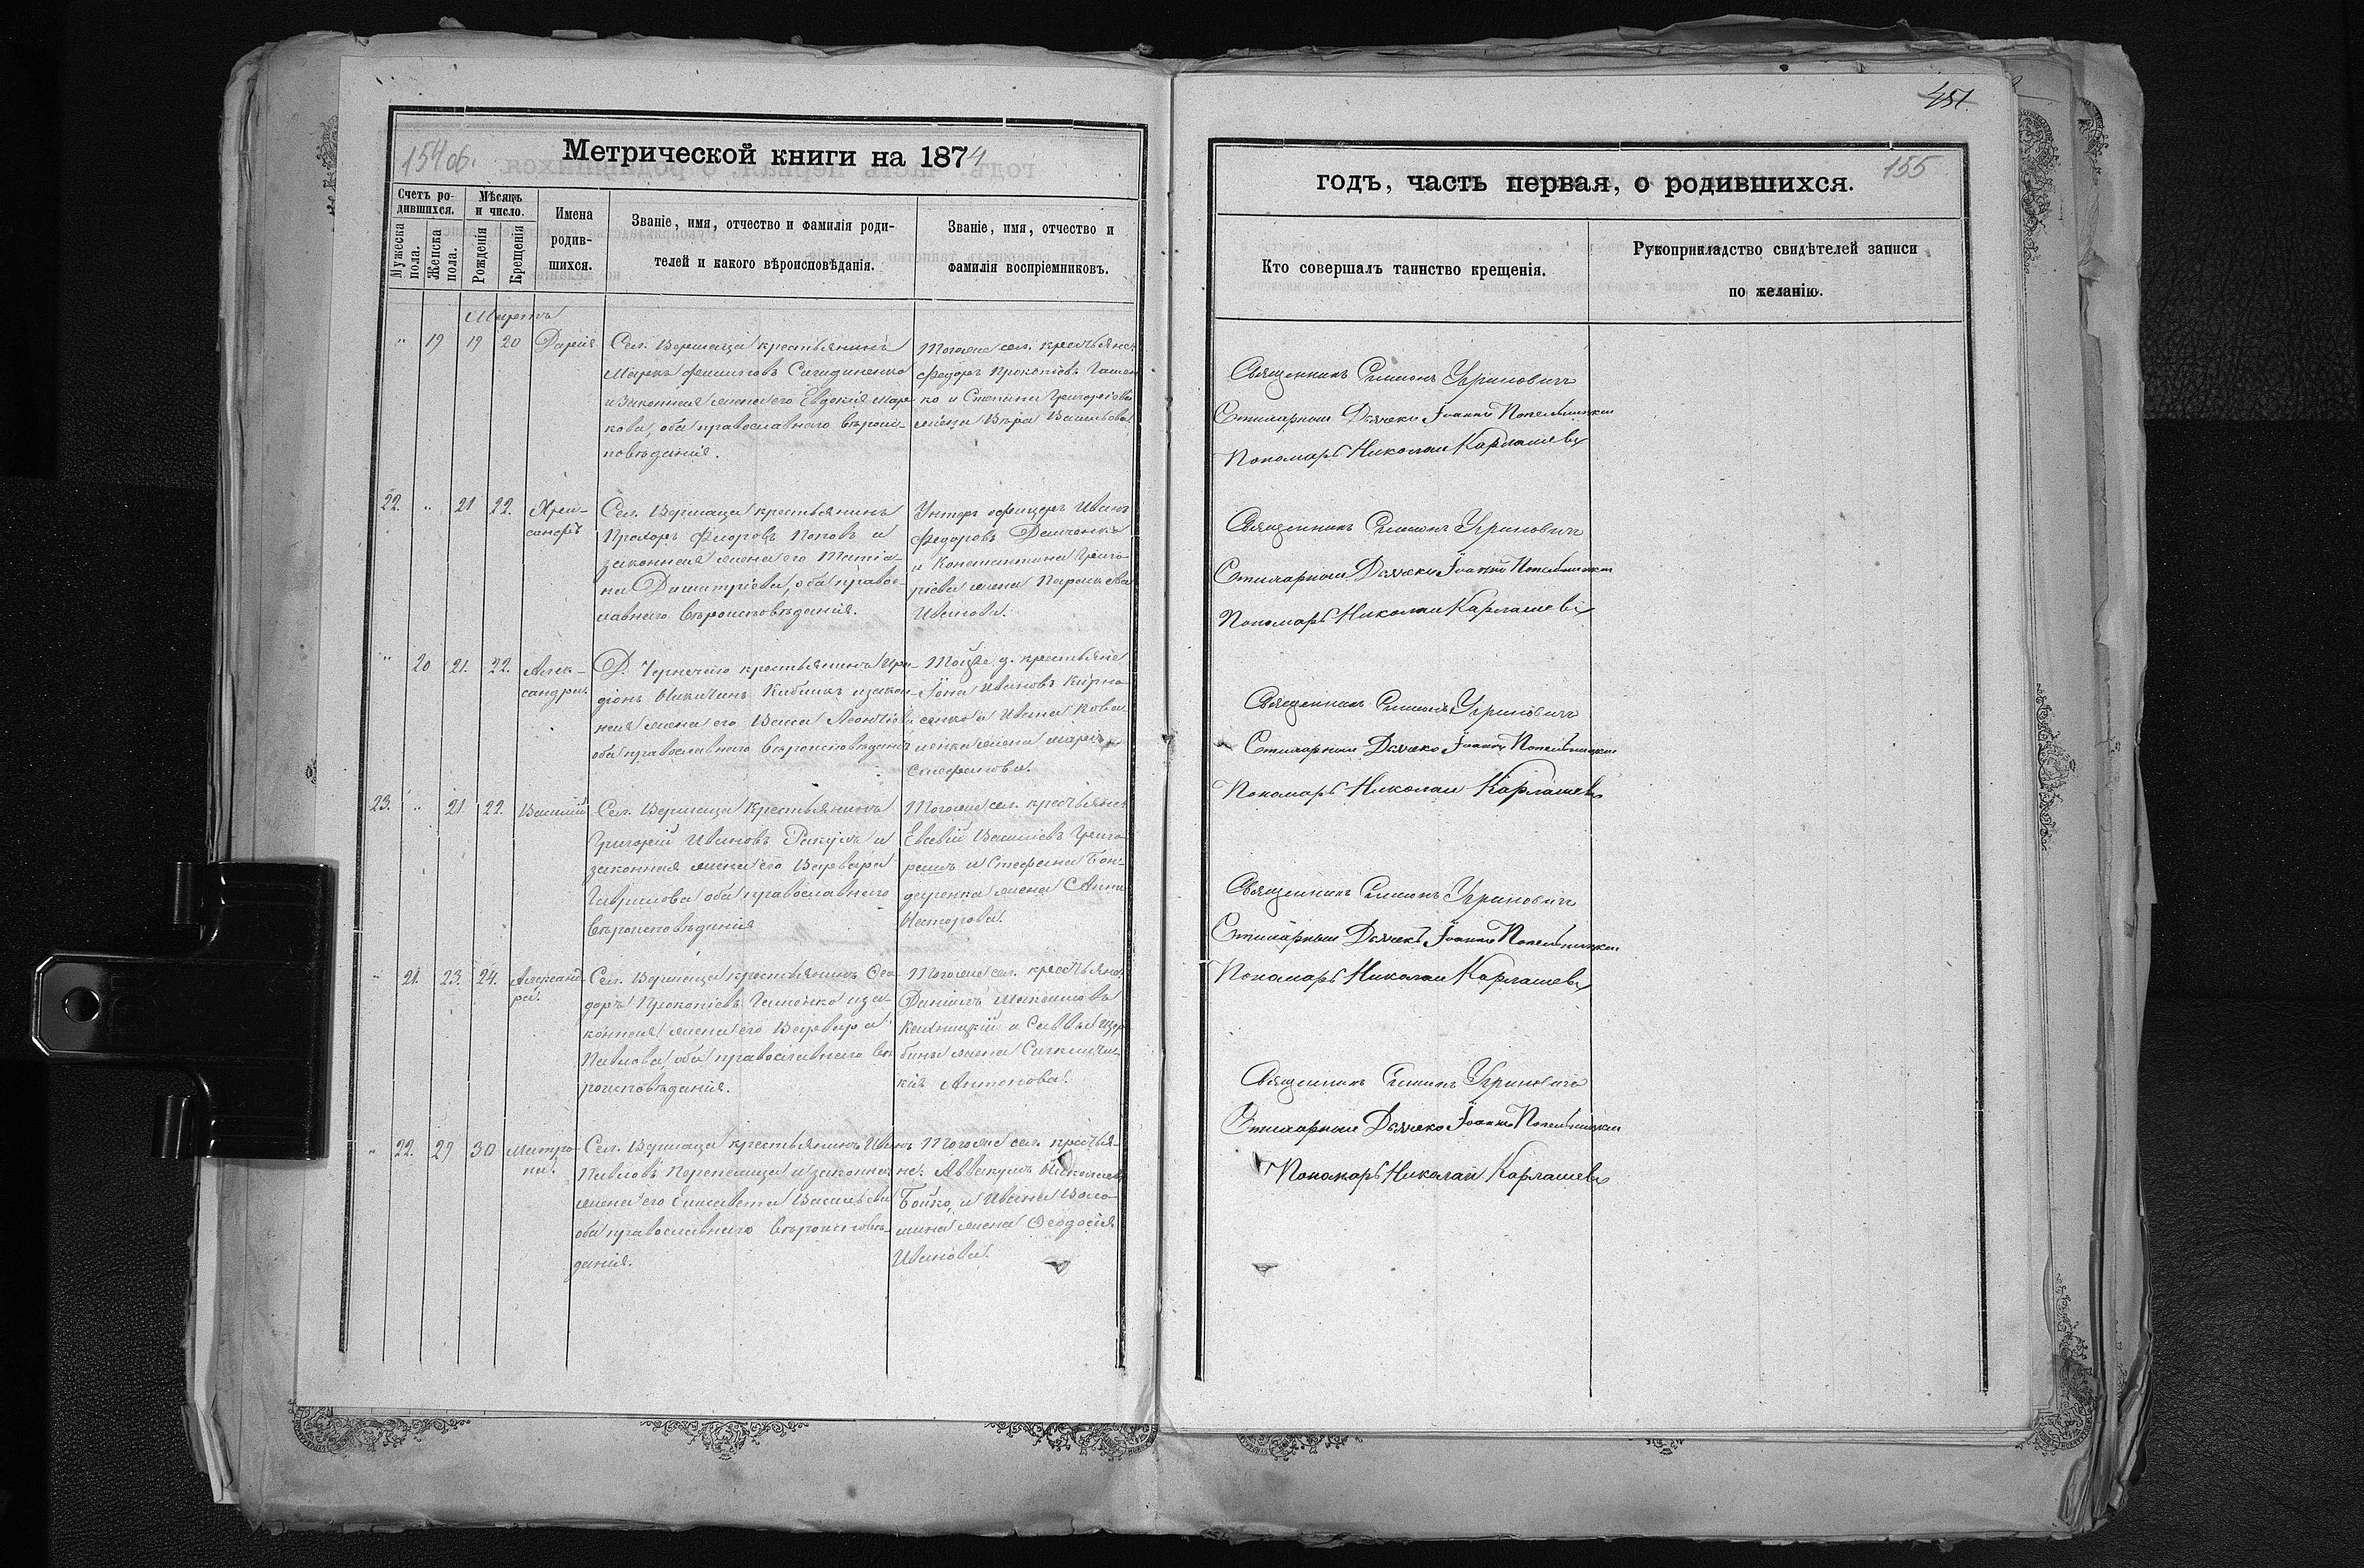 154 об.
Метрической книги на 1874
Счетъ ро-
дившихся.
Мужеска пола.
Женска пола.
Мѣсяцъ
и число.
Рожденія
Крещенія
Имена
родив-
шихся.
Званіе, имя, отчество и фамилія роди-
телей и какого вѣроисповѣданія.
Званіе, имя, отчество и
фамилія воспріемниковъ.
Мартъ
" 19 19 20 Дарія
Сел. Вермаща крестьянинъ
Марко Филиповъ
и законная жена его Евдокия Мар-
кова, оба православнаго вѣроис-
повѣданія.
Тогоже сел. крестьяне:
Федоръ Прокопіевъ Гамен-
ко и Стефана Григорьева
жена Вѣра Васильева
22. " 21 22. Хри-
санфъ
Сел. Вермаща крестьянинъ
Прохоръ Федоровъ Поповъ и
законная жена его Татіа-
на Димитріева, оба правос-
лавнаго вѣроисповѣданія.
Унтеръ офицеръ Иванъ
Федоровъ Демченко
и Константина Григо-
ріева жена
Иванова.
" 20 21. 22. Алек-
сандра.
Д. крестьянинъ Ири-
діонъ Никитинъ и закон-
ная жена его Васса Леонтіева
оба православнаго вѣроисповѣданія
Тойже д. крестьяне
Іона Ивановъ Кирно-
сенко и Ивана Кова-
ленка жена Марія
Стефанова.
23. " 21. 22. Василій
Сел. Вермаща крестьянинъ
Григорій Ивановъ и
законная жена его Варвара
Гаврилова оба православнаго
вѣроисповѣданія
Тогоже сел. крестьяне
Евсевій Васильевъ Григо-
рашъ и Стефана Бон-
даренка жена Анна
Несторова.
" 21. 23. 24. Александ-
ра.
Сел. Вермаща крестьянинъ Фео-
доръ Прокопіевъ Гаменко и за-
конная жена его Варвара
Павлова, оба православнаго вѣ-
роисповѣданія.
Тогоже сел. крестьяне
Даніилъ Максимовъ
и Саввы Щер-
бины жена
кія Антонова.
" 22. 29 30 Матро-
на.
Сел. Вермаща крестьянинъ Иванъ
Павловъ Перепелица и законная
жена его Елисавета Васильева
оба православнаго вѣроисповѣ-
данія.
Тогоже сел. крестья-
не: Аввакумъ Николаевъ
Бойко, и Ивана Воло-
шина жена Феодосія
Иванова.
451.
155
годъ, часть первая, о родившихся.
Кто совершалъ таинство крещенія.
Рукоприкладство свидѣтелей записи
по желанію.
Священникъ Симеонъ Угриновичъ
Стихарный Дьячекъ Іоаннъ Попельницкій
Пономарь Николай Карлашевъ
Священникъ Симеонъ Угриновичъ
Стихарный Дьячекъ Іоаннъ Попельницкій
Пономарь Николай Карлашевъ
Священникъ Симеонъ Угриновичъ
Стихарный Дьячекъ Іоаннъ Попельницкій
Пономарь Николай Карлашевъ
Священникъ Симеонъ Угриновичъ
Стихарный Дьячекъ Іоаннъ Попельницкій
Пономарь Николай Карлашевъ
Священникъ Симеонъ Угриновичъ
Стихарный Дьячекъ Іоаннъ Попельницкій
Пономарь Николай Карлашевъ